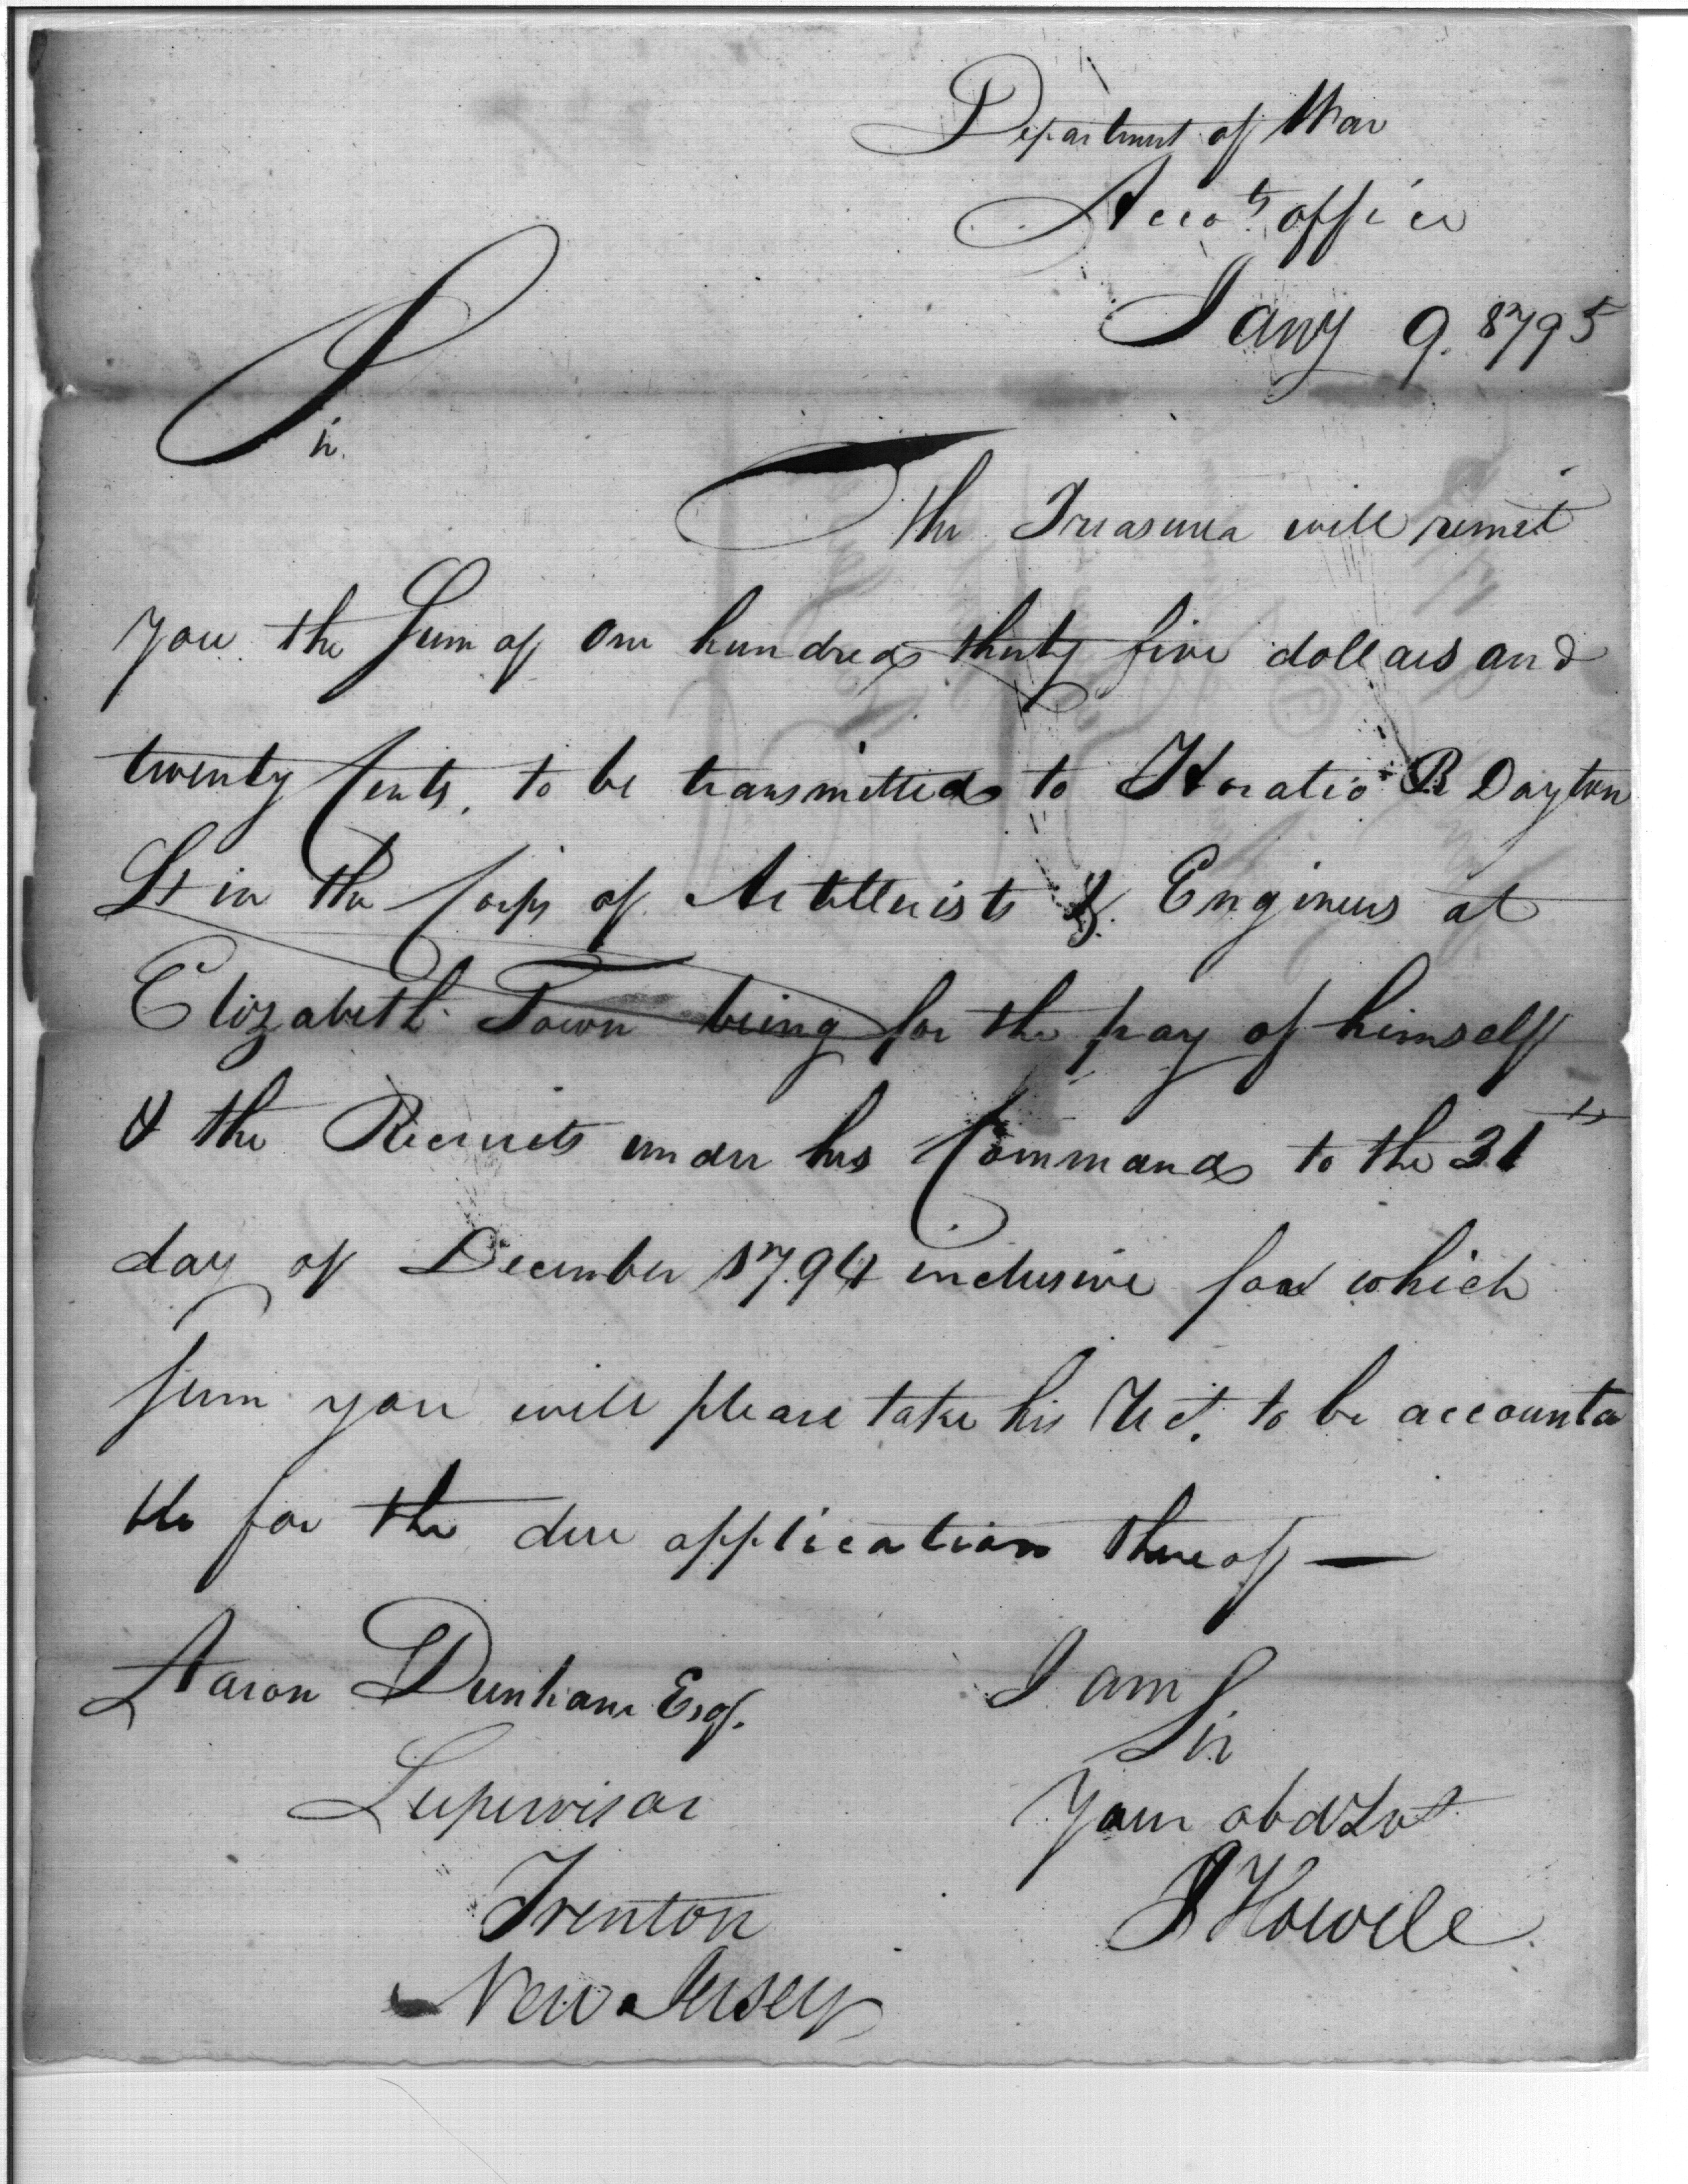 Department of War
Accots office
Jany 9. 1795
Sir
The Treasurer will remit
you the Sum of One hundred thirty five dollars and
twenty Cents, to be transmitted to Horatio R Dayton
Lt in the Corps of Artillerists & Engineers at
Elizabeth Town being for the pay of himself
& the Recruits under his Command to the 31ts
day of December 1794 inclusive for which
Sum you will please take his Rect. to be accounta
ble for the due application thereof —
Aaron Dunham Esq. I am
Sir
Supervisor Your obd Svt
Trenton J Howell
New Jersey